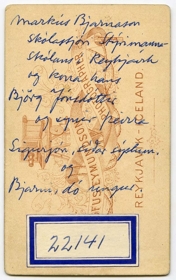 Markus Bjarnason
skólastjóri Stýrimanna-
skólans Reykjavík
og kona hans
Björg Jónsdóttir
og synir þeirra
Sigurjón, eldri system,
og
Bjarni, do yngri
SIGFÚS EYMUNDSSON
REYKJAVIK - ICELAND
22141